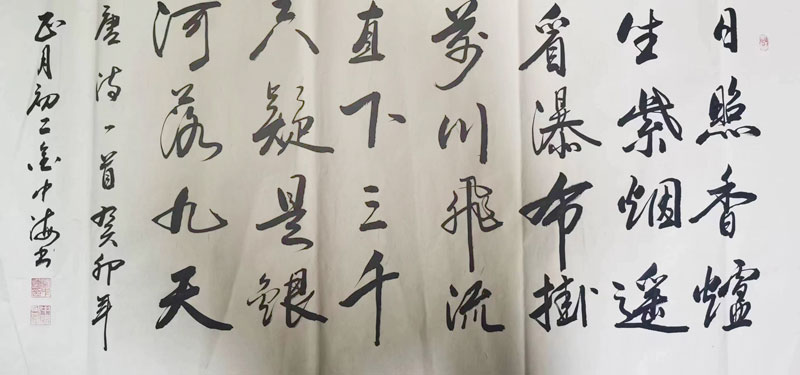 日照香爐
生紫烟遥
看瀑布掛
前川飛流
直下三千
尺疑是銀
河落九天
唐诗一首癸卯年
正月初二金中海书